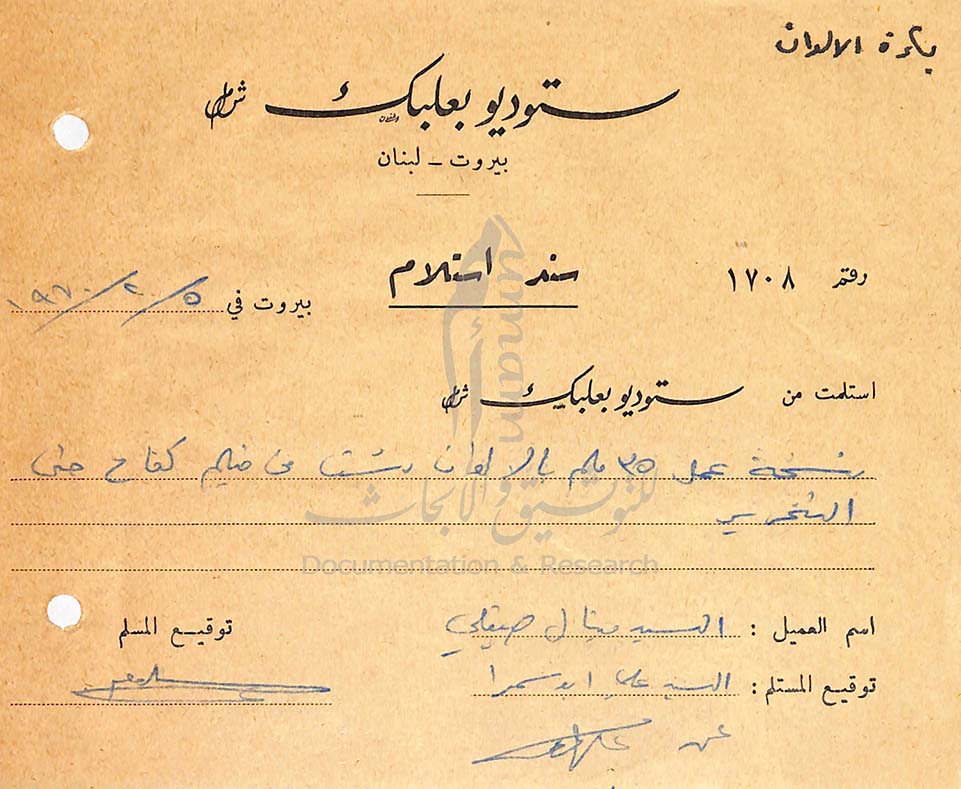 بكرة الالوان
ستوديو بعلبك ش م ل
بيروت - لبنان
رقم ١٧٠٨
سند استلام
بيروت في ٥ / ٢ / ١٩٧٠
استلمت من ستوديو بعلبك ش م ل
نسخة عمل ٣٥ ملم بالالوان من فيلم كفاح حتى
التحرير
اسم العميل : السيد صيقلي
توقيع المسلم
توقيع المستلم : السيد علي ابو سمرا
عن
umam
للتوثيق والأبحاث
Documentation & Research